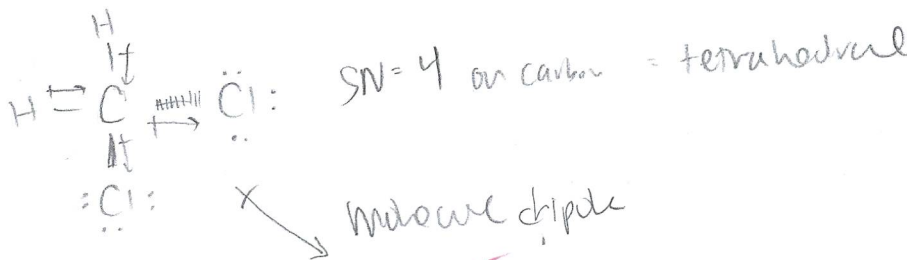 H
H C Cl: SN=4 on carbon = tetrahedral
:Cl:
molecule dipole